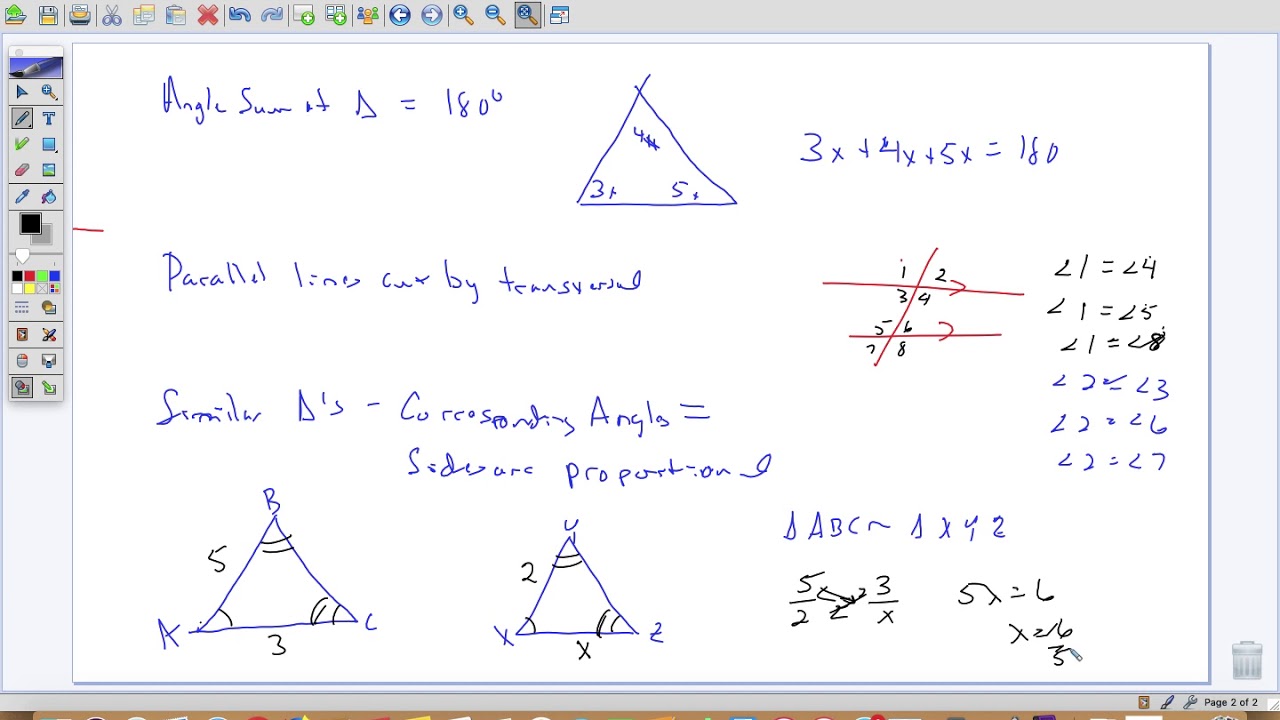 Angle Sum of Δ = 180°
4x
3x 5x
3x + 4x + 5x = 180
Parallel lines cut by transversal
1 2
3 4
5 6
7 8
∠1 = ∠4
∠1 = ∠5
∠1 = ∠8
∠2 = ∠3
∠2 = ∠6
∠2 = ∠7
Similar Δ's - Corresponding Angles =
Sides are proportional
B
5
A C
3
Y
2
X Z
x
Δ ABC ~ Δ XYZ
5/2 = 3/x
5x = 6
x = 6/5
Page 2 of 2